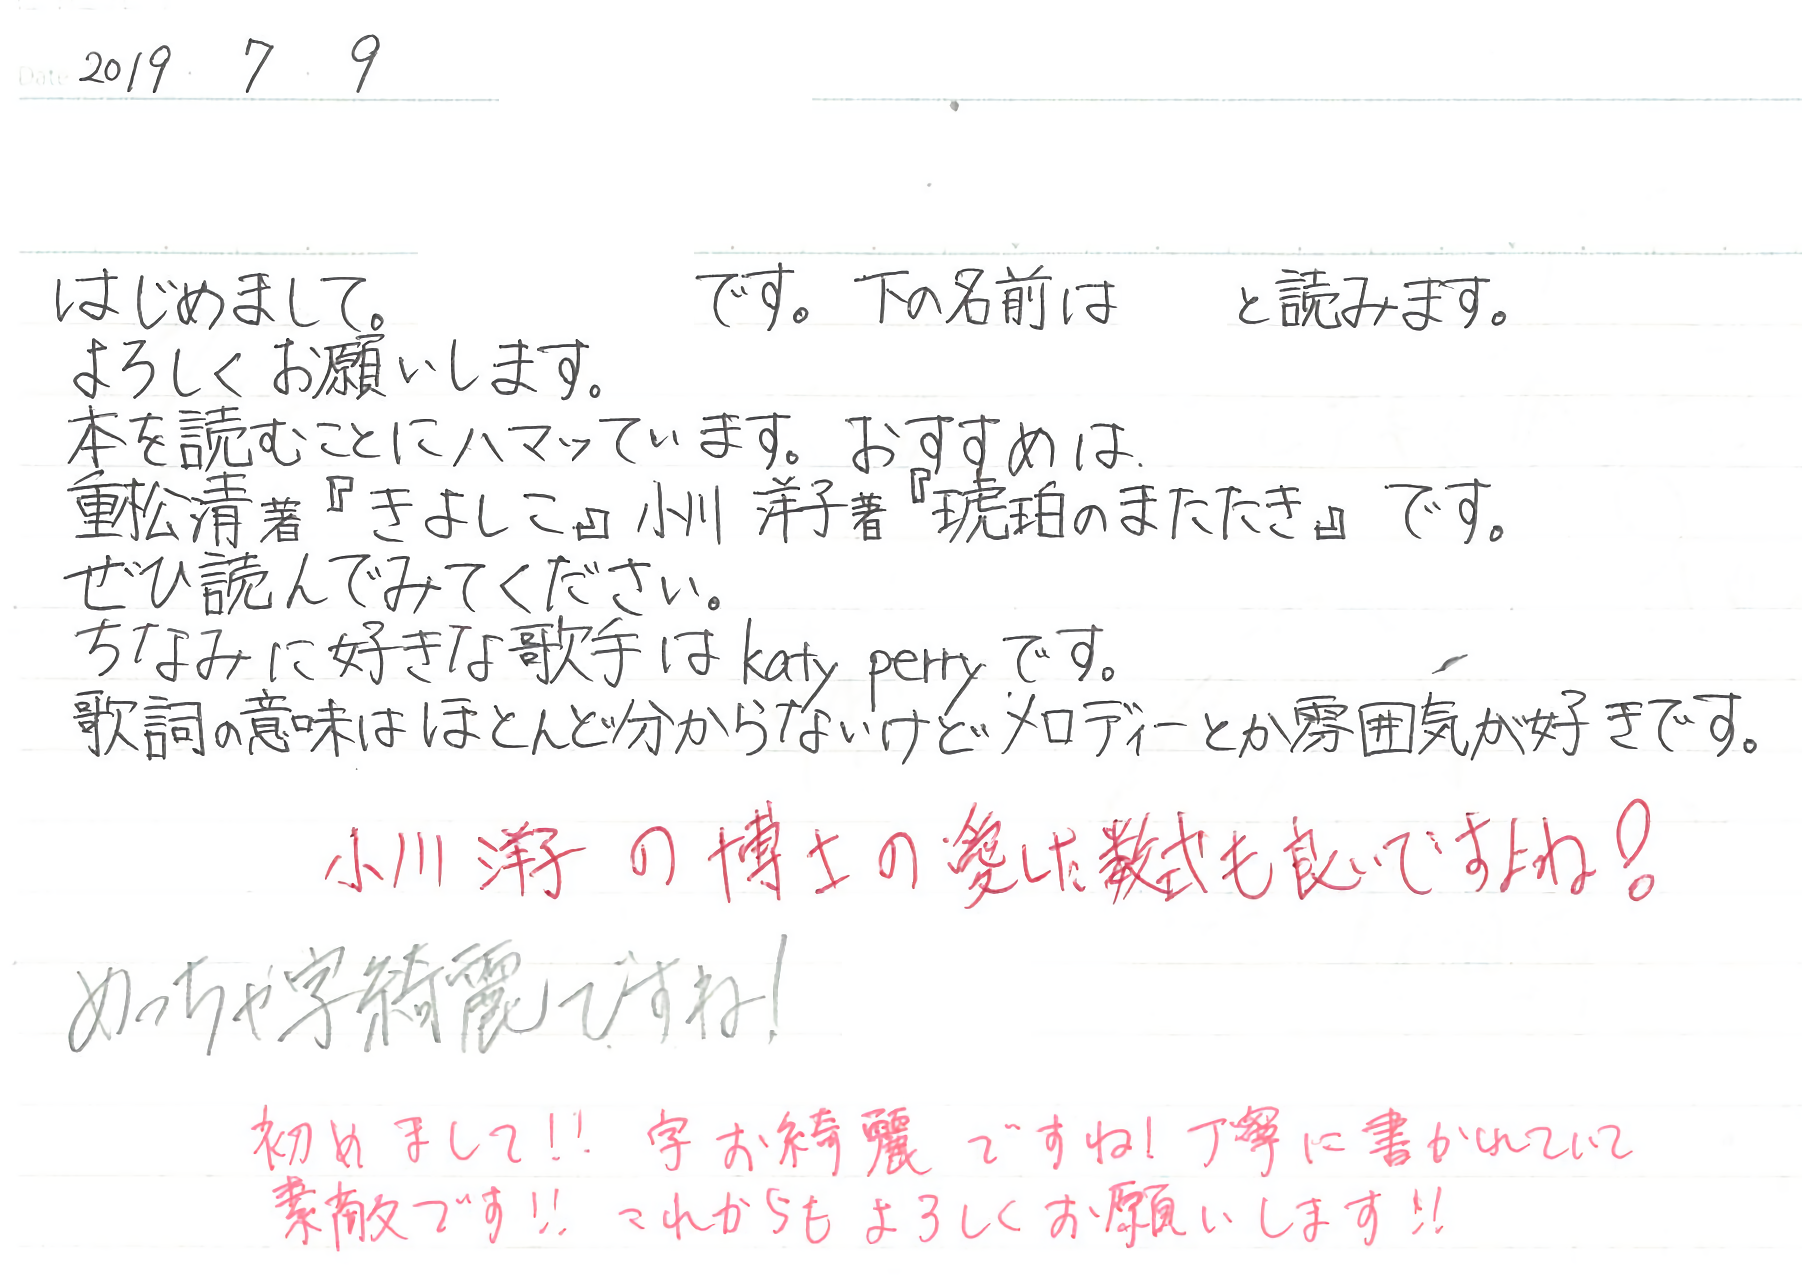 Date 2019 7 9
はじめまして。 です。下の名前は と読みます。
よろしくお願いします。
本を読むことにハマッています。おすすめは、
重松清著『きよしこ』小川洋子著『琥珀のまたたき』です。
ぜひ読んでみてください。
ちなみに好きな歌手はkaty perryです。
歌詞の意味はほとんど分からないけどメロディーとか雰囲気が好きです。
小川洋子の博士の愛した数式も良いですよね!
めっちゃ字綺麗ですね!
初めまして!! 字お綺麗ですね!丁寧に書かれていて
素敵です!! これからもよろしくお願いします!!